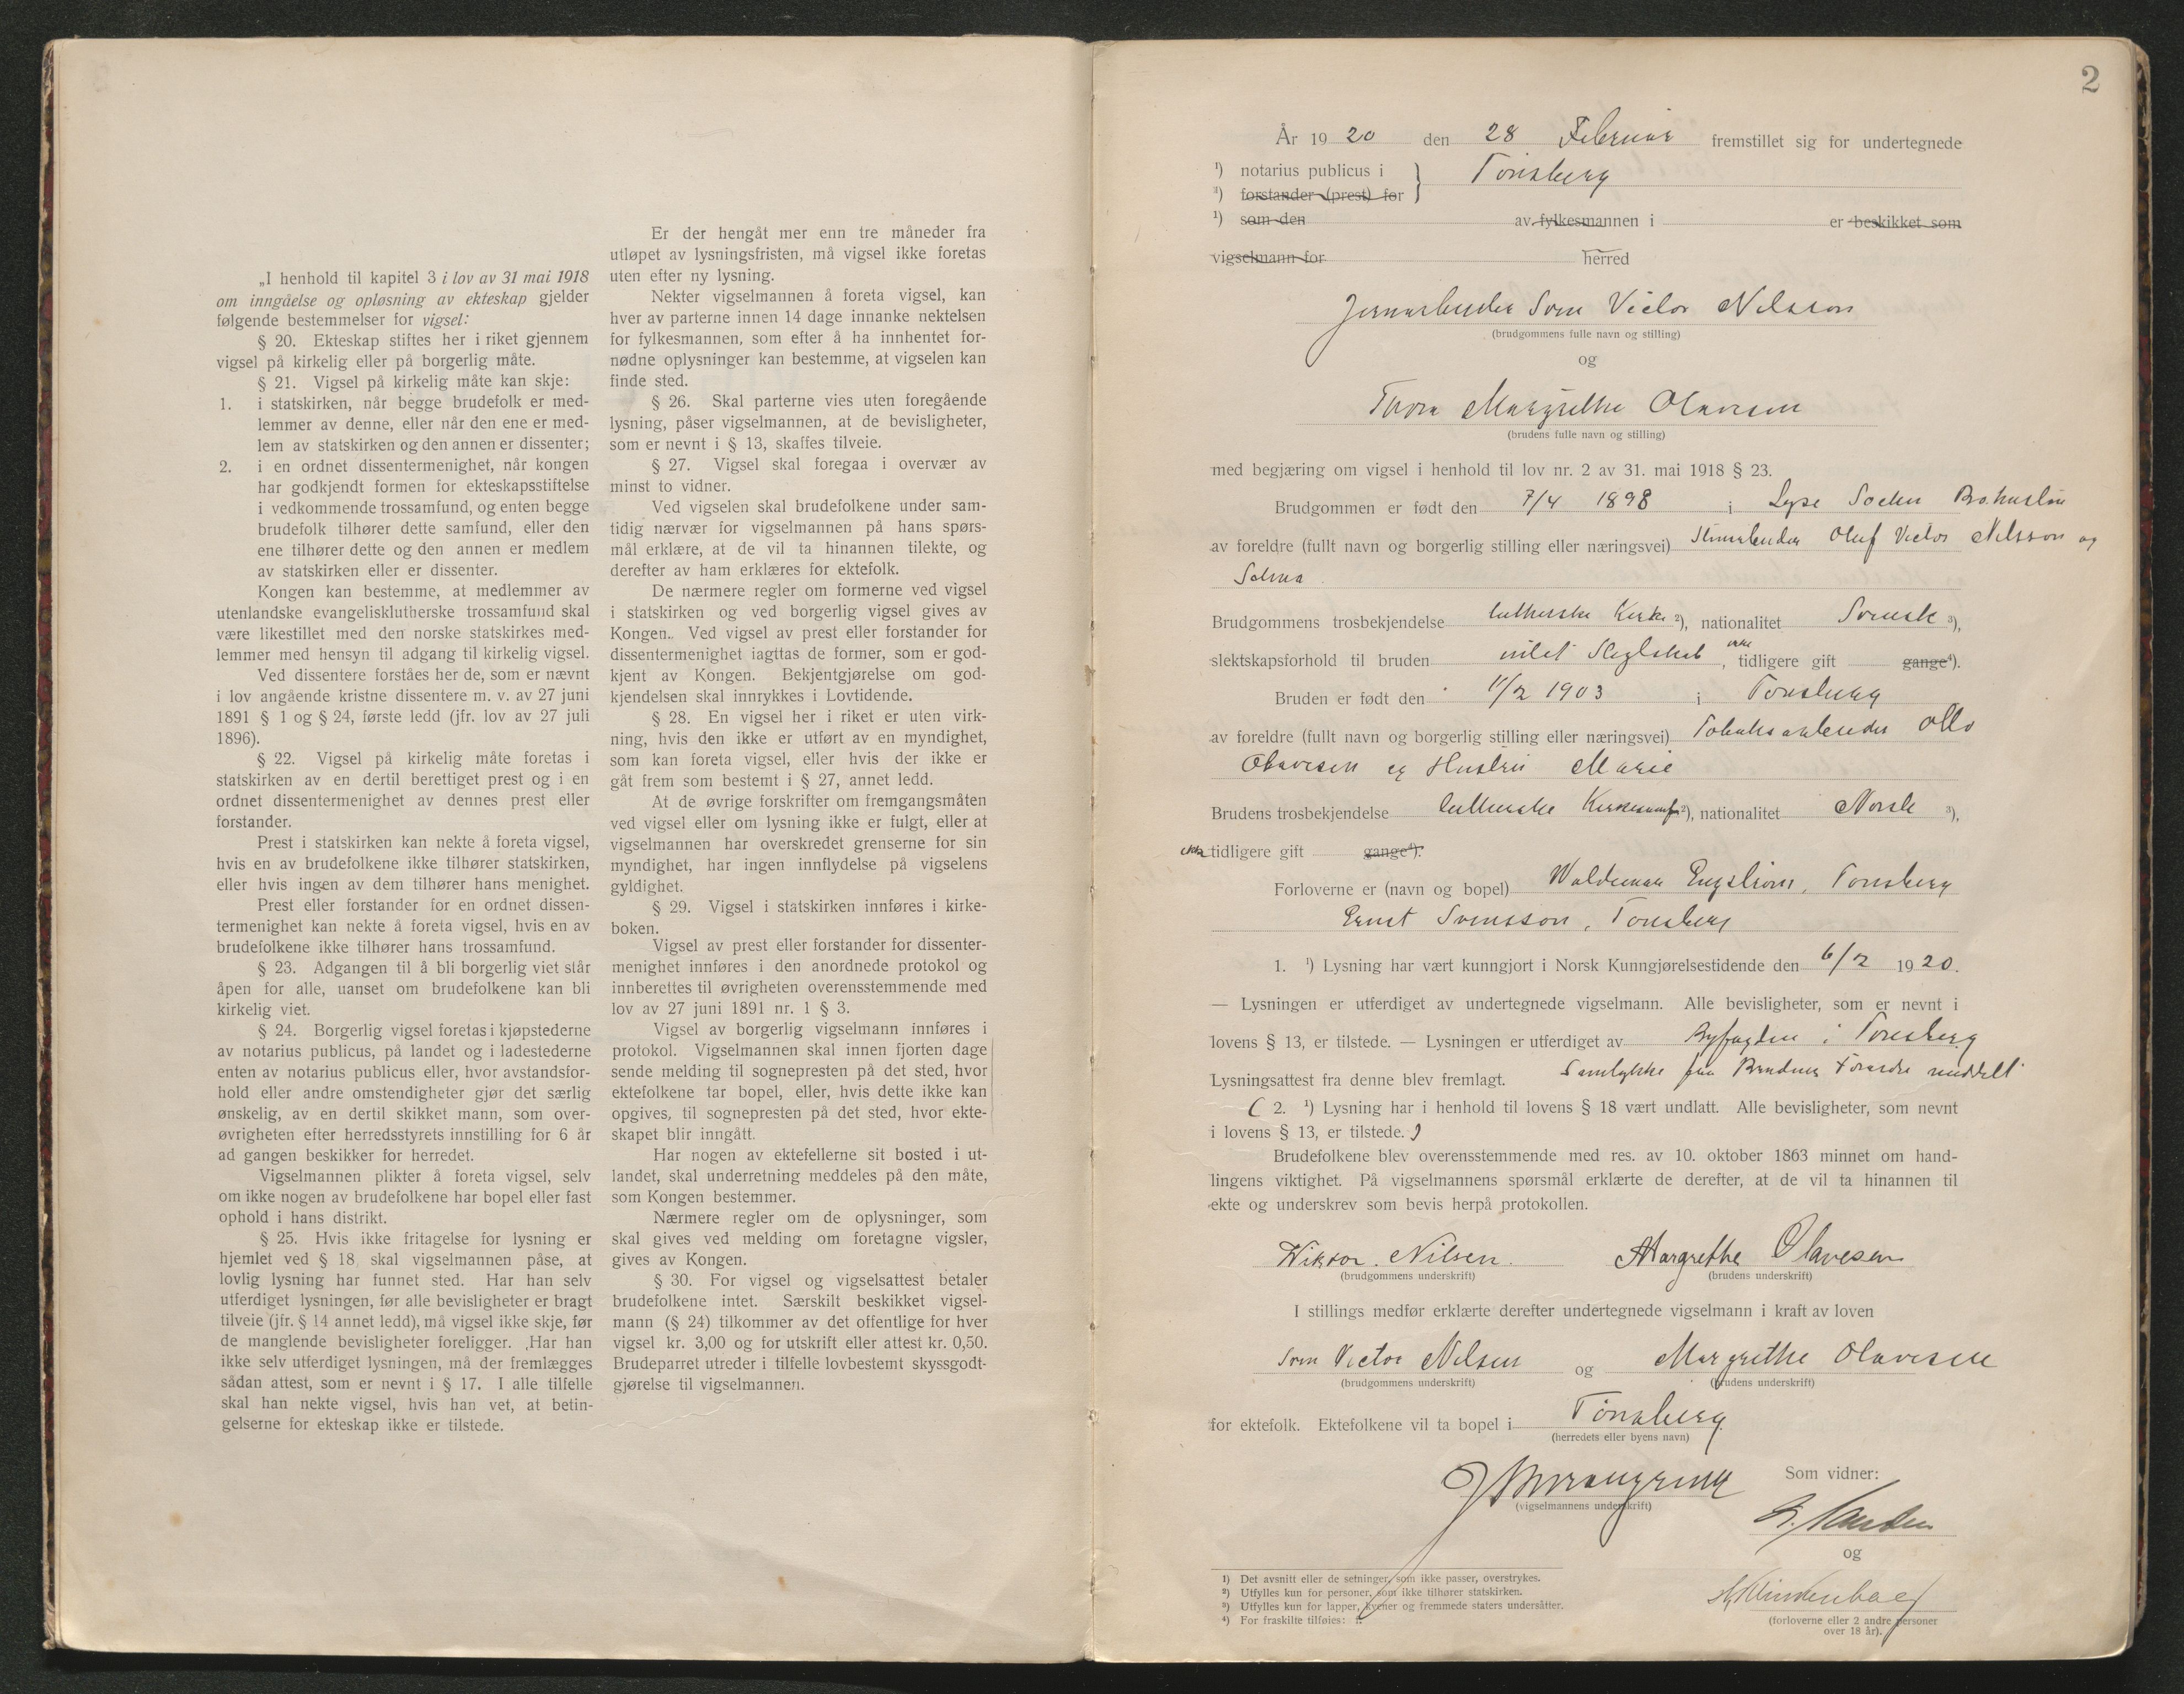 „I henhold til kapitel 3 i lov av 31 mai 1918
om inngåelse og opløsning av ekteskap gjelder
følgende bestemmelser for vigsel:
§ 20. Ekteskap stiftes her i riket gjennem
vigsel på kirkelig eller på borgerlig måte.
§ 21. Vigsel på kirkelig måte kan skje:
1. i statskirken, når begge brudefolk er med-
lemmer av denne, eller når den ene er med-
lem av statskirken og den annen er dissenter;
2. i en ordnet dissentermenighet, når kongen
har godkjendt formen for ekteskapsstiftelse
i vedkommende trossamfund, og enten begge
brudefolk tilhører dette samfund, eller den
ene tilhører dette og den annen er medlem
av statskirken eller er dissenter.
Kongen kan bestemme, at medlemmer av
utenlandske evangeliskluthерske trossamfund skal
være likestillet med den norske statskirkes med-
lemmer med hensyn til adgang til kirkelig vigsel.
Ved dissentere forståes her de, som er nævnt
i lov angående kristne dissentere m. v. av 27 juni
1891 § 1 og § 24, første ledd (jfr. lov av 27 juli
1896).
§ 22. Vigsel på kirkelig måte foretas i
statskirken av en dertil berettiget prest og i en
ordnet dissentermenighet av dennes prest eller
forstander.
Prest i statskirken kan nekte å foreta vigsel,
hvis en av brudefolkene ikke tilhører statskirken,
eller hvis ingen av dem tilhører hans menighet.
Prest eller forstander for en ordnet dissen-
termenighet kan nekte å foreta vigsel, hvis en av
brudefolkene ikke tilhører hans trossamfund.
§ 23. Adgangen til å bli borgerlig viet står
åpen for alle, uanset om brudefolkene kan bli
kirkelig viet.
§ 24. Borgerlig vigsel foretas i kjøpstederne
av notarius publicus, på landet og i ladestederne
enten av notarius publicus eller, hvor avstandsfor-
hold eller andre omstendigheter gjør det særlig
ønskelig, av en dertil skikket mann, som over-
øvrigheten efter herredsstyrets innstilling for 6 år
ad gangen beskikker for herredet.
Vigselmannen plikter å foreta vigsel, selv
om ikke nogen av brudefolkene har bopel eller fast
ophold i hans distrikt.
§ 25. Hvis ikke fritagelse for lysning er
hjemlet ved § 18 skal vigselmannen påse, at
lovlig lysning har funnet sted. Har han selv
utferdiget lysningen, før alle bevisligheter er bragt
tilveie (jfr. § 14 annet ledd), må vigsel ikke skje, før
de manglende bevisligheter foreligger. Har han
ikke selv utferdiget lysningen, må der fremlægges
sådan attest, som er nevnt i § 17. I alle tilfelle
skal han nekte vigsel, hvis han vet, at betin-
gelserne for ekteskap ikke er tilstede.
Er der hengåt mer enn tre måneder fra
utløpet av lysningsfristen, må vigsel ikke foretas
uten efter ny lysning.
Nekter vigselmannen å foreta vigsel, kan
hver av parterne innen 14 dage innanke nektelsen
for fylkesmannen, som efter å ha innhentet for-
nødne oplysninger kan bestemme, at vigselen kan
finde sted.
§ 26. Skal parterne vies uten foregående
lysning, påser vigselmannen, at de bevisligheter,
som er nevnt i § 13, skaffes tilveie.
§ 27. Vigsel skal foregaa i overvær av
minst to vidner.
Ved vigselen skal brudefolkene under sam-
tidig nærvær for vigselmannen på hans spørs-
mål erklære, at de vil ta hinannen tilekte, og
derefter av ham erklæres for ektefolk.
De nærmere regler om formerne ved vigsel
i statskirken og ved borgerlig vigsel gives av
Kongen. Ved vigsel av prest eller forstander for
dissentermenighet iagttas de former, som er god-
kjent av Kongen. Bekjentgjørelse om god-
kjendelsen skal innrykkes i Lovtidende.
§ 28. En vigsel her i riket er uten virk-
ning, hvis den ikke er utført av en myndighet,
som kan foreta vigsel, eller hvis der ikke er
gåt frem som bestemt i § 27, annet ledd.
At de øvrige forskrifter om fremgangsmåten
ved vigsel eller om lysning ikke er fulgt, eller at
vigselmannen har overskredet grenserne for sin
myndighet, har ingen innflydelse på vigselens
gyldighet.
§ 29. Vigsel i statskirken innføres i kirke-
boken.
Vigsel av prest eller forstander for dissenter-
menighet innføres i den anordnede protokol og
innberettes til øvrigheten overensstemmende med
lov av 27 juni 1891 nr. 1 § 3.
Vigsel av borgerlig vigselmann innføres i
protokol. Vigselmannen skal innen fjorten dage
sende melding til sognepresten på det sted, hvor
ektefolkene tar bopel, eller, hvis dette ikke kan
opgives, til sognepresten på det sted, hvor ekte-
skapet blir inngått.
Har nogen av ektefellerne sit bosted i ut-
landet, skal underretning meddeles på den måte,
som Kongen bestemmer.
Nærmere regler om de oplysninger, som
skal gives ved melding om foretagne vigsler,
gives av Kongen.
§ 30. For vigsel og vigselsattest betaler
brudefolkene intet. Særskilt beskikket vigsel-
mann (§ 24) tilkommer av det offentlige for hver
vigsel kr. 3,00 og for utskrift eller attest kr. 0,50.
Brudeparret utreder i tilfelle lovbestemt skyssgodt-
gjørelse til vigselmannen.
2
År 1920 den 28 Februar fremstillet sig for undertegnede
1) notarius publicus i } Tønsberg
1) forstander (prest) for
1) som den av fylkesmannen i er beskikket som
vigselmann for herred
Jernarbeider Sven Victor Nilsson
(brudgommens fulle navn og stilling)
og
Thora Margrethe Olavesen
(brudens fulle navn og stilling)
med begjæring om vigsel i henhold til lov nr. 2 av 31. mai 1918 § 23.
Brudgommen er født den 7/4 1898 i Lyse Socken Bohuslän
av foreldre (fullt navn og borgerlig stilling eller næringsvei) Stenarbeider Oluf Victor Nilsson og
Selma
Brudgommens trosbekjendelse lutherske Kirke 2), nationalitet Svensk 3),
slektskapsforhold til bruden intet Slegtskab, ikke tidligere gift gange4).
Bruden er født den 11/2 1903 i Tønsberg
av foreldre (fullt navn og borgerlig stilling eller næringsvei) Tobaksarbeider Otto
Olavesen og Hustru Marie
Brudens trosbekjendelse lutherske Kirkesamf 2), nationalitet Norsk 3),
ikke tidligere gift gange4).
Forloverne er (navn og bopel) Waldemar Engstrøm, Tønsberg
Ernst Svensson, Tønsberg
1. 1) Lysning har vært kunngjort i Norsk Kunngjørelsestidende den 6/2 1920.
— Lysningen er utferdiget av undertegnede vigselmann. Alle bevisligheter, som er nevnt i
lovens § 13, er tilstede. — Lysningen er utferdiget av Byfogden i Tønsberg
Lysningsattest fra denne blev fremlagt. Samtykke fra Brudens Forældre meddelt
( 2. 1) Lysning har i henhold til lovens § 18 vært undlatt. Alle bevisligheter, som nevnt
i lovens § 13, er tilstede. )
Brudefolkene blev overensstemmende med res. av 10. oktober 1863 minnet om hand-
lingens viktighet. På vigselmannens spørsmål erklærte de derefter, at de vil ta hinannen til
ekte og underskrev som bevis herpå protokollen.
Wiktor. Nilsen. Margrethe Olavesen
(brudgommens underskrift) (brudens underskrift)
I stillings medfør erklærte derefter undertegnede vigselmann i kraft av loven
Sven Victor Nilsen og Margrethe Olavesen
(brudgommens underskrift) (brudens underskrift)
for ektefolk. Ektefolkene vil ta bopel i Tønsberg
(herredets eller byens navn)
(vigselmannens underskrift)
Som vidner:
og
(forloverne eller 2 andre personer
over 18 år).
1) Det avsnitt eller de setninger, som ikke passer, overstrykes.
2) Utfylles kun for personer, som ikke tilhører statskirken.
3) Utfylles kun for lapper, kvener og fremmede staters undersåtter.
4) For fraskilte tilføies: f.